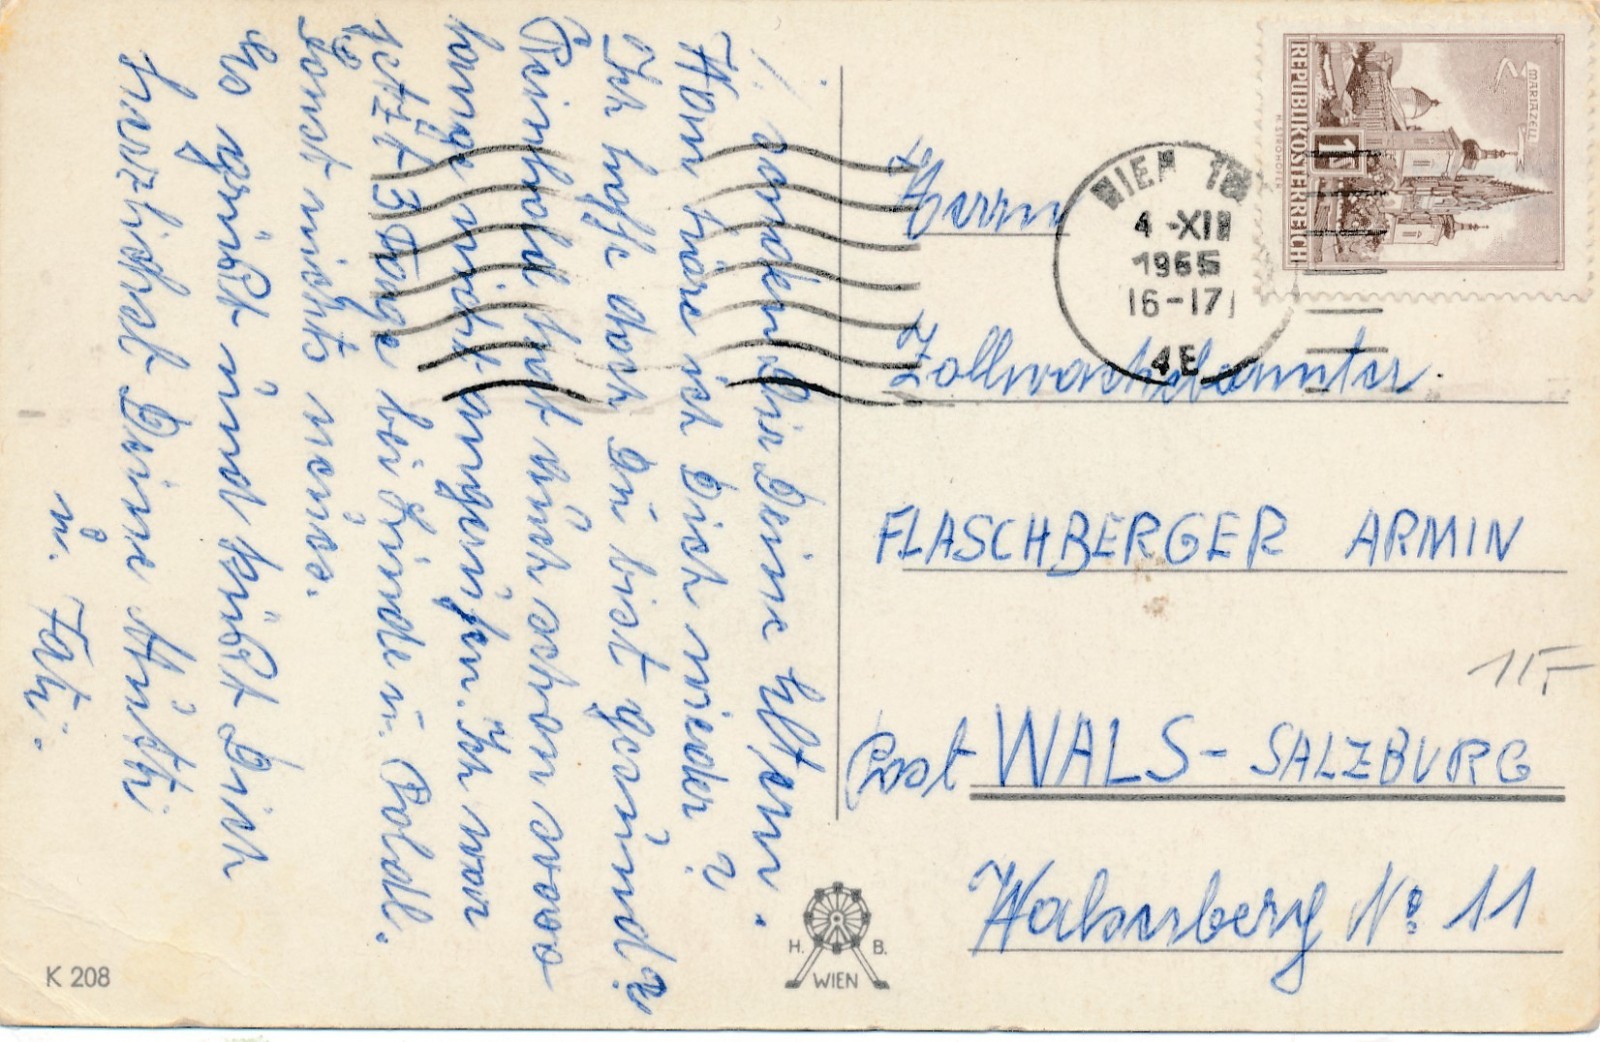 danken Dir Deine Eltern.
Wann höre ich Dich wieder?
Ich hoffe doch Du bist gesund?
Reinhold hat mich schon sooo
lange nicht angerufen. Ich war
jetzt 3 Tage bei Linde u. Poldl.
Sonst nichts neues.
Es grüßt und küßt Dich
herzlichst Deine Mutti
u. Fati.
K 208
H. B.
WIEN
REPUBLIK ÖSTERREICH
MARIAZELL
1S
WIEN
4-XII
1965
16-17
4E
Herrn
Zollwachebeamter.
FLASCHBERGER ARMIN
Post WALS - SALZBURG
Walserberg No 11